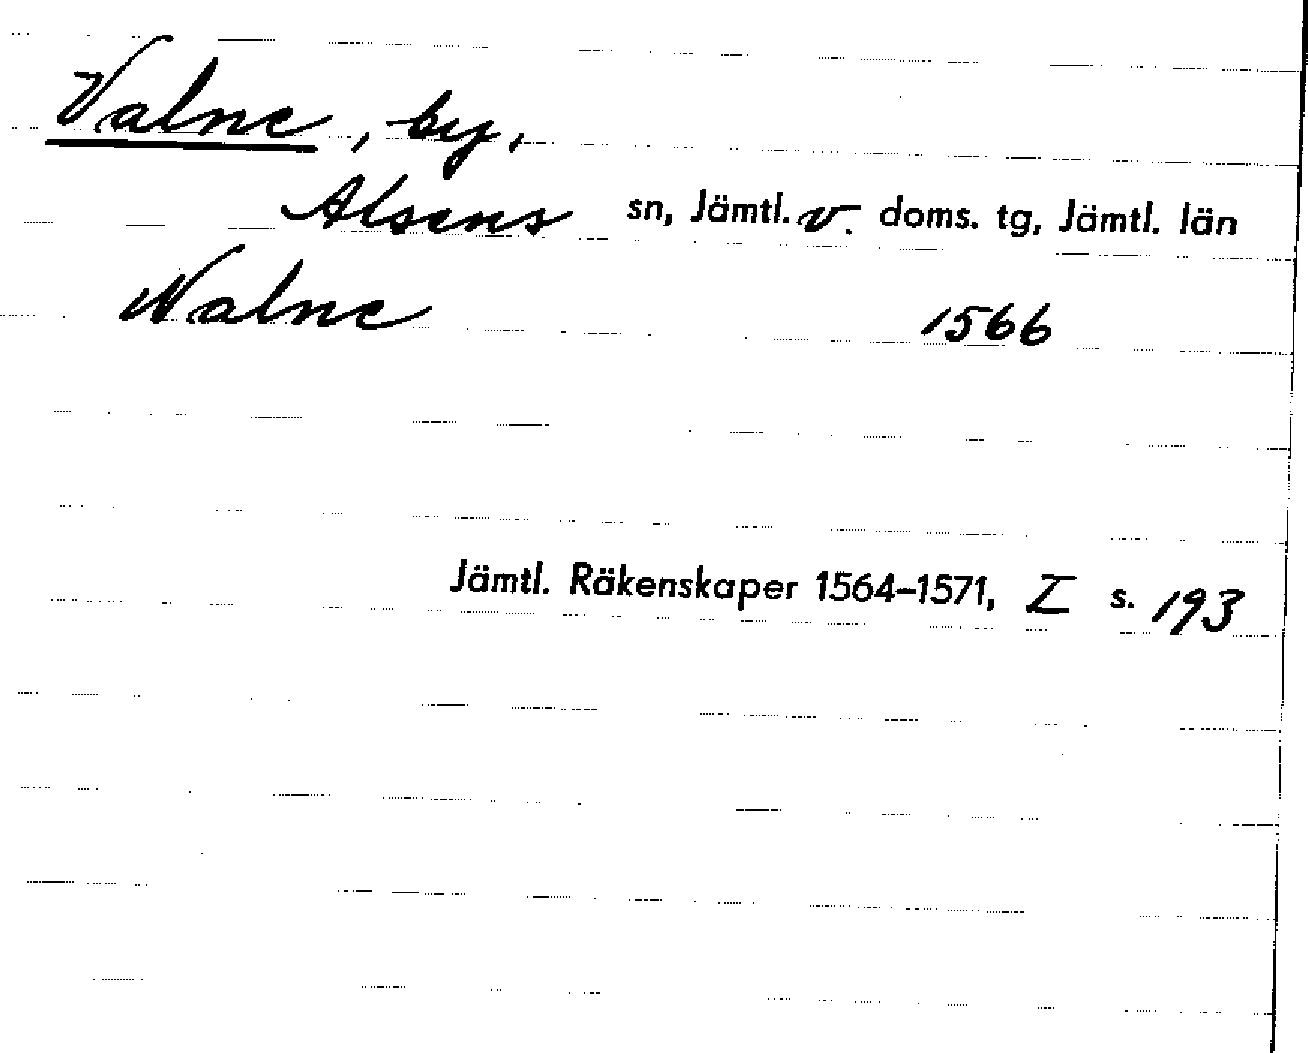 Valne, by,
Alsens sn, Jämtl. v. doms. tg, Jämtl. län
Walne 1566
Jämtl. Räkenskaper 1564–1571, I s. 193